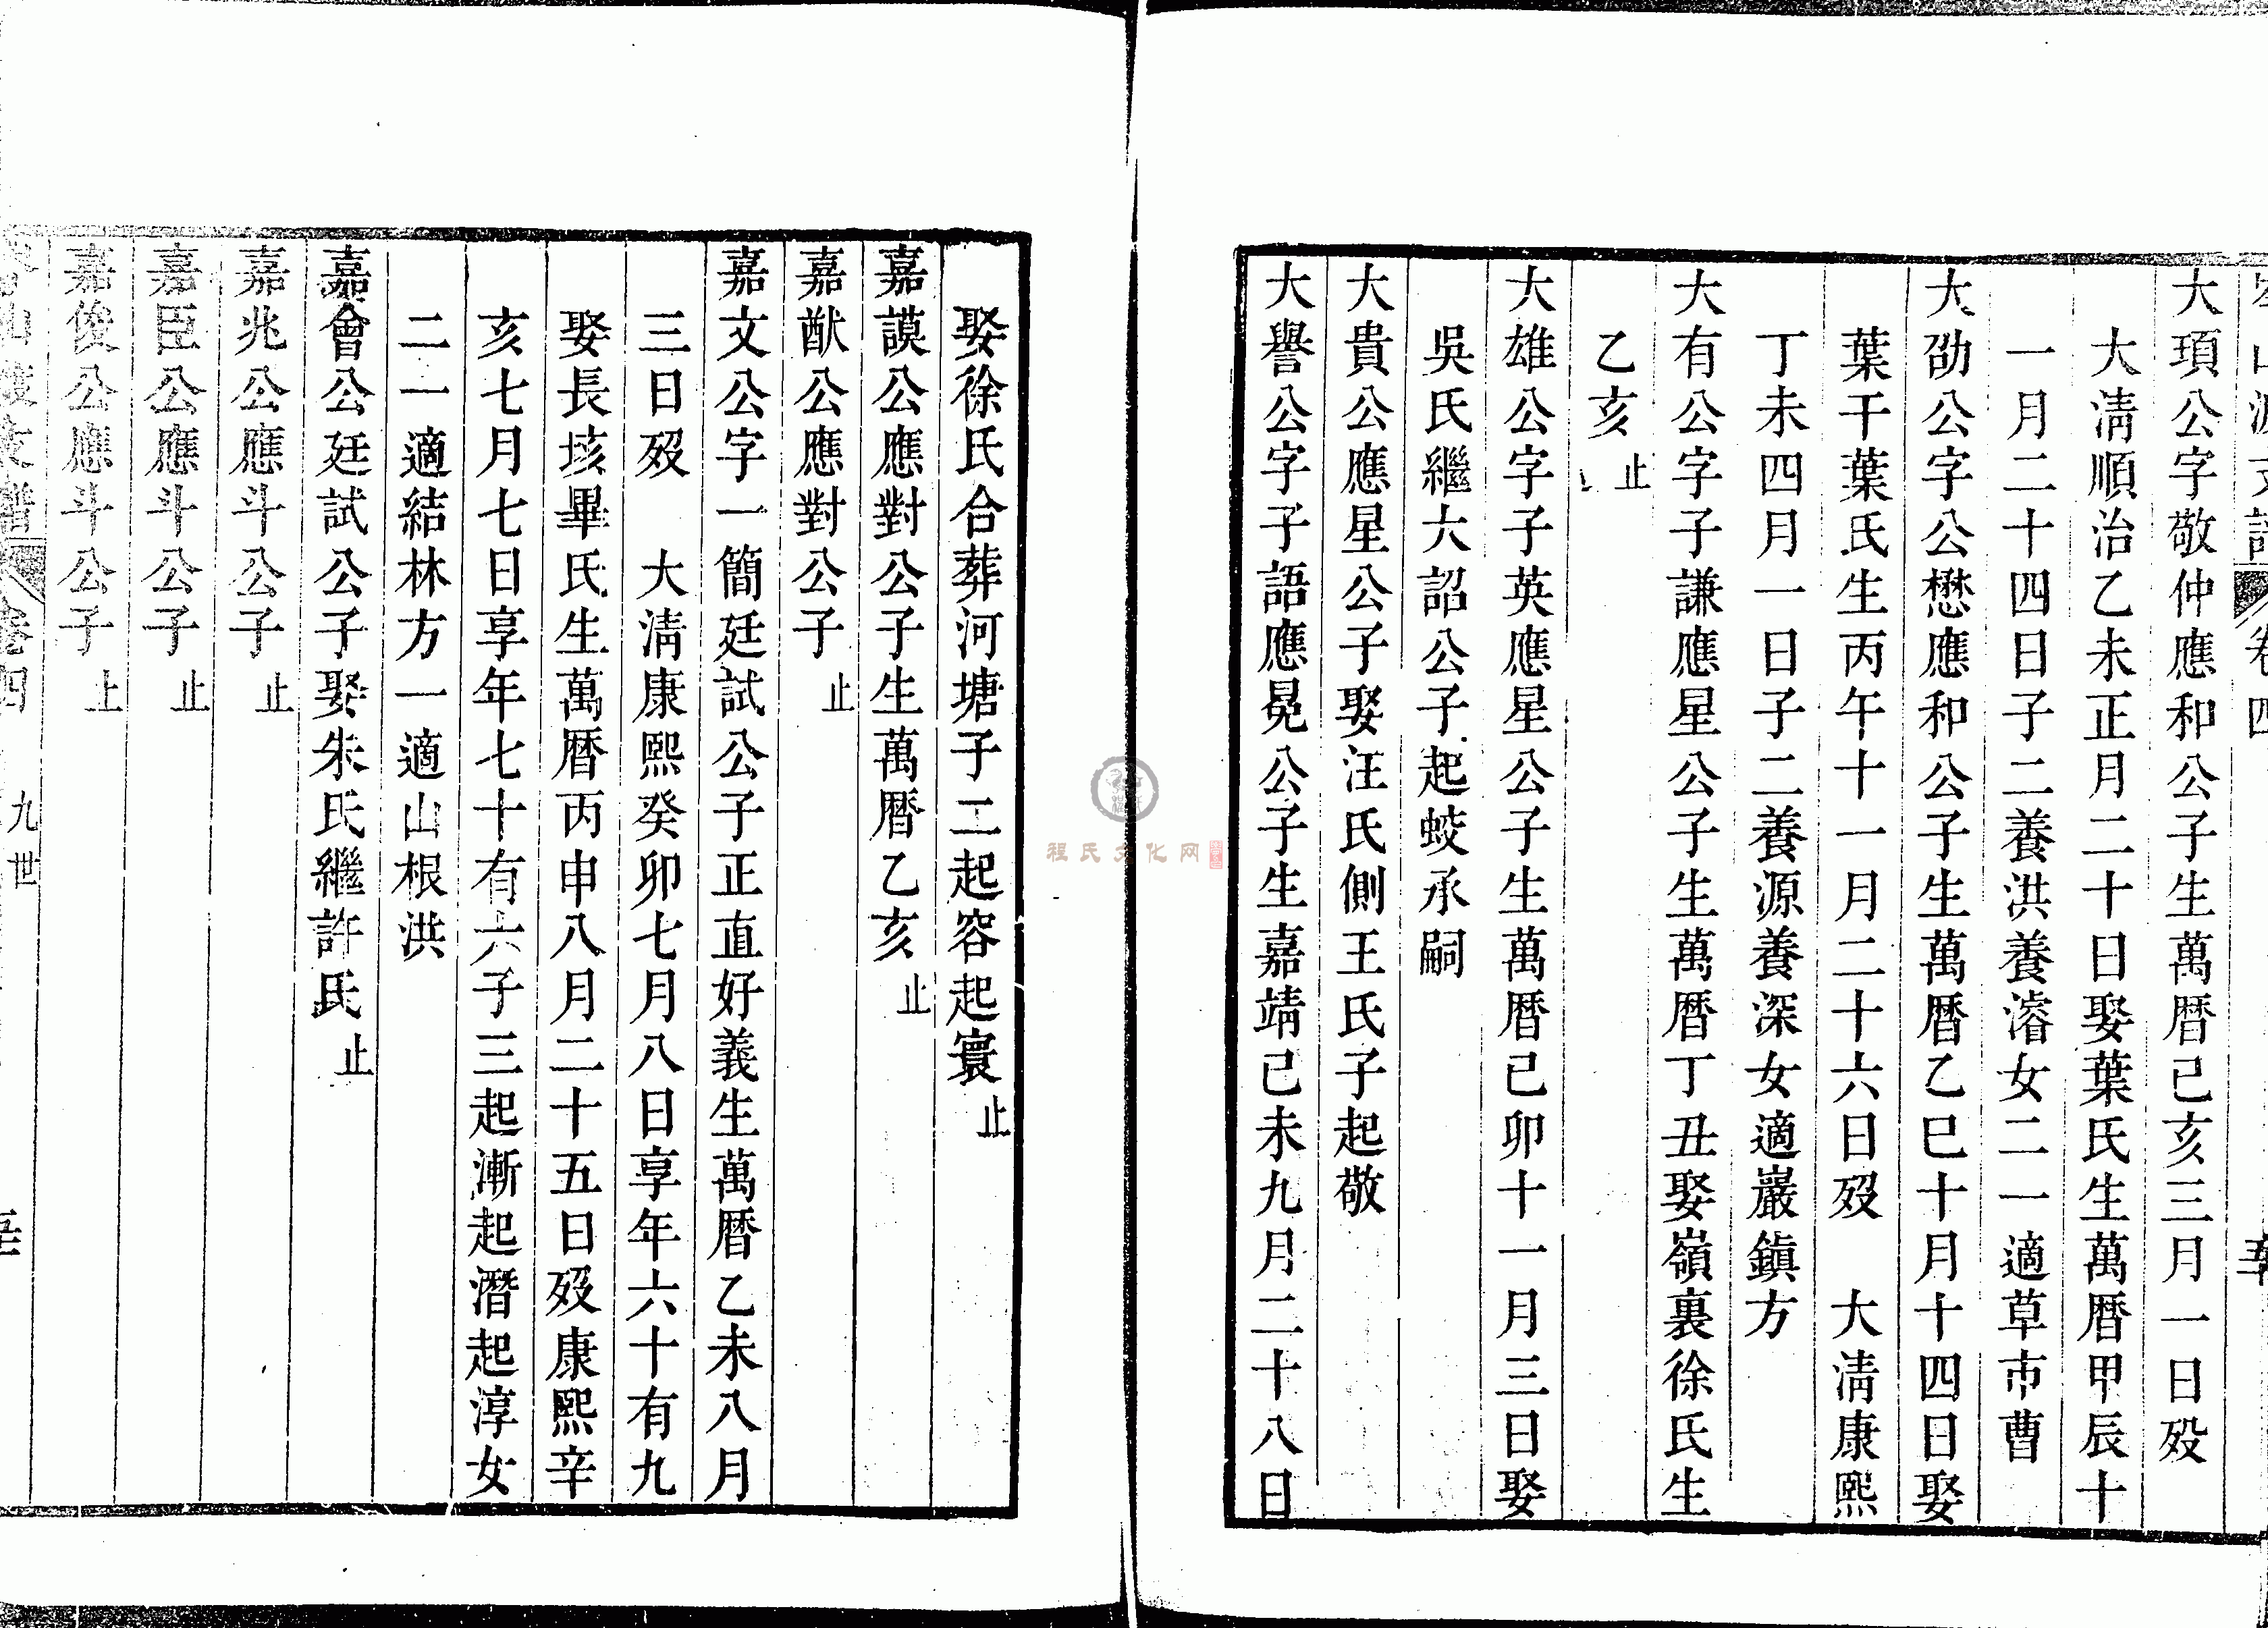 大頊公字敬仲應和公子生萬曆己亥三月一日歿
大淸順治乙未正月二十日娶葉氏生萬曆甲辰十
一月二十四日子二養洪養濬女二一適草市曹
大劭公字公懋應和公子生萬曆乙巳十月十四日娶
葉干葉氏生丙午十一月二十六日歿　大淸康熙
丁未四月一日子二養源養深女適巖鎮方
大有公字子謙應星公子生萬曆丁丑娶嶺裏徐氏生
乙亥止
大雄公字子英應星公子生萬曆己卯十一月三日娶
吳氏繼大詔公子起蛟承嗣
大貴公應星公子娶汪氏側王氏子起敬
大譽公字子語應晃公子生嘉靖己未九月二十八日
娶徐氏合葬河塘子二起容起寰止
嘉謨公應對公子生萬曆乙亥止
嘉猷公應對公子止
嘉文公字一簡廷試公子正直好義生萬曆乙未八月
三日歿　大淸康熙癸卯七月八日享年六十有九
娶長垓畢氏生萬曆丙申八月二十五日歿康熙辛
亥七月七日享年七十有六子三起漸起潛起淳女
二一適結林方一適山根洪
嘉會公廷試公子娶朱氏繼許氏止
嘉兆公應斗公子止
嘉臣公應斗公子止
嘉俊公應斗公子止
支譜　卷四　九世
程氏文化网